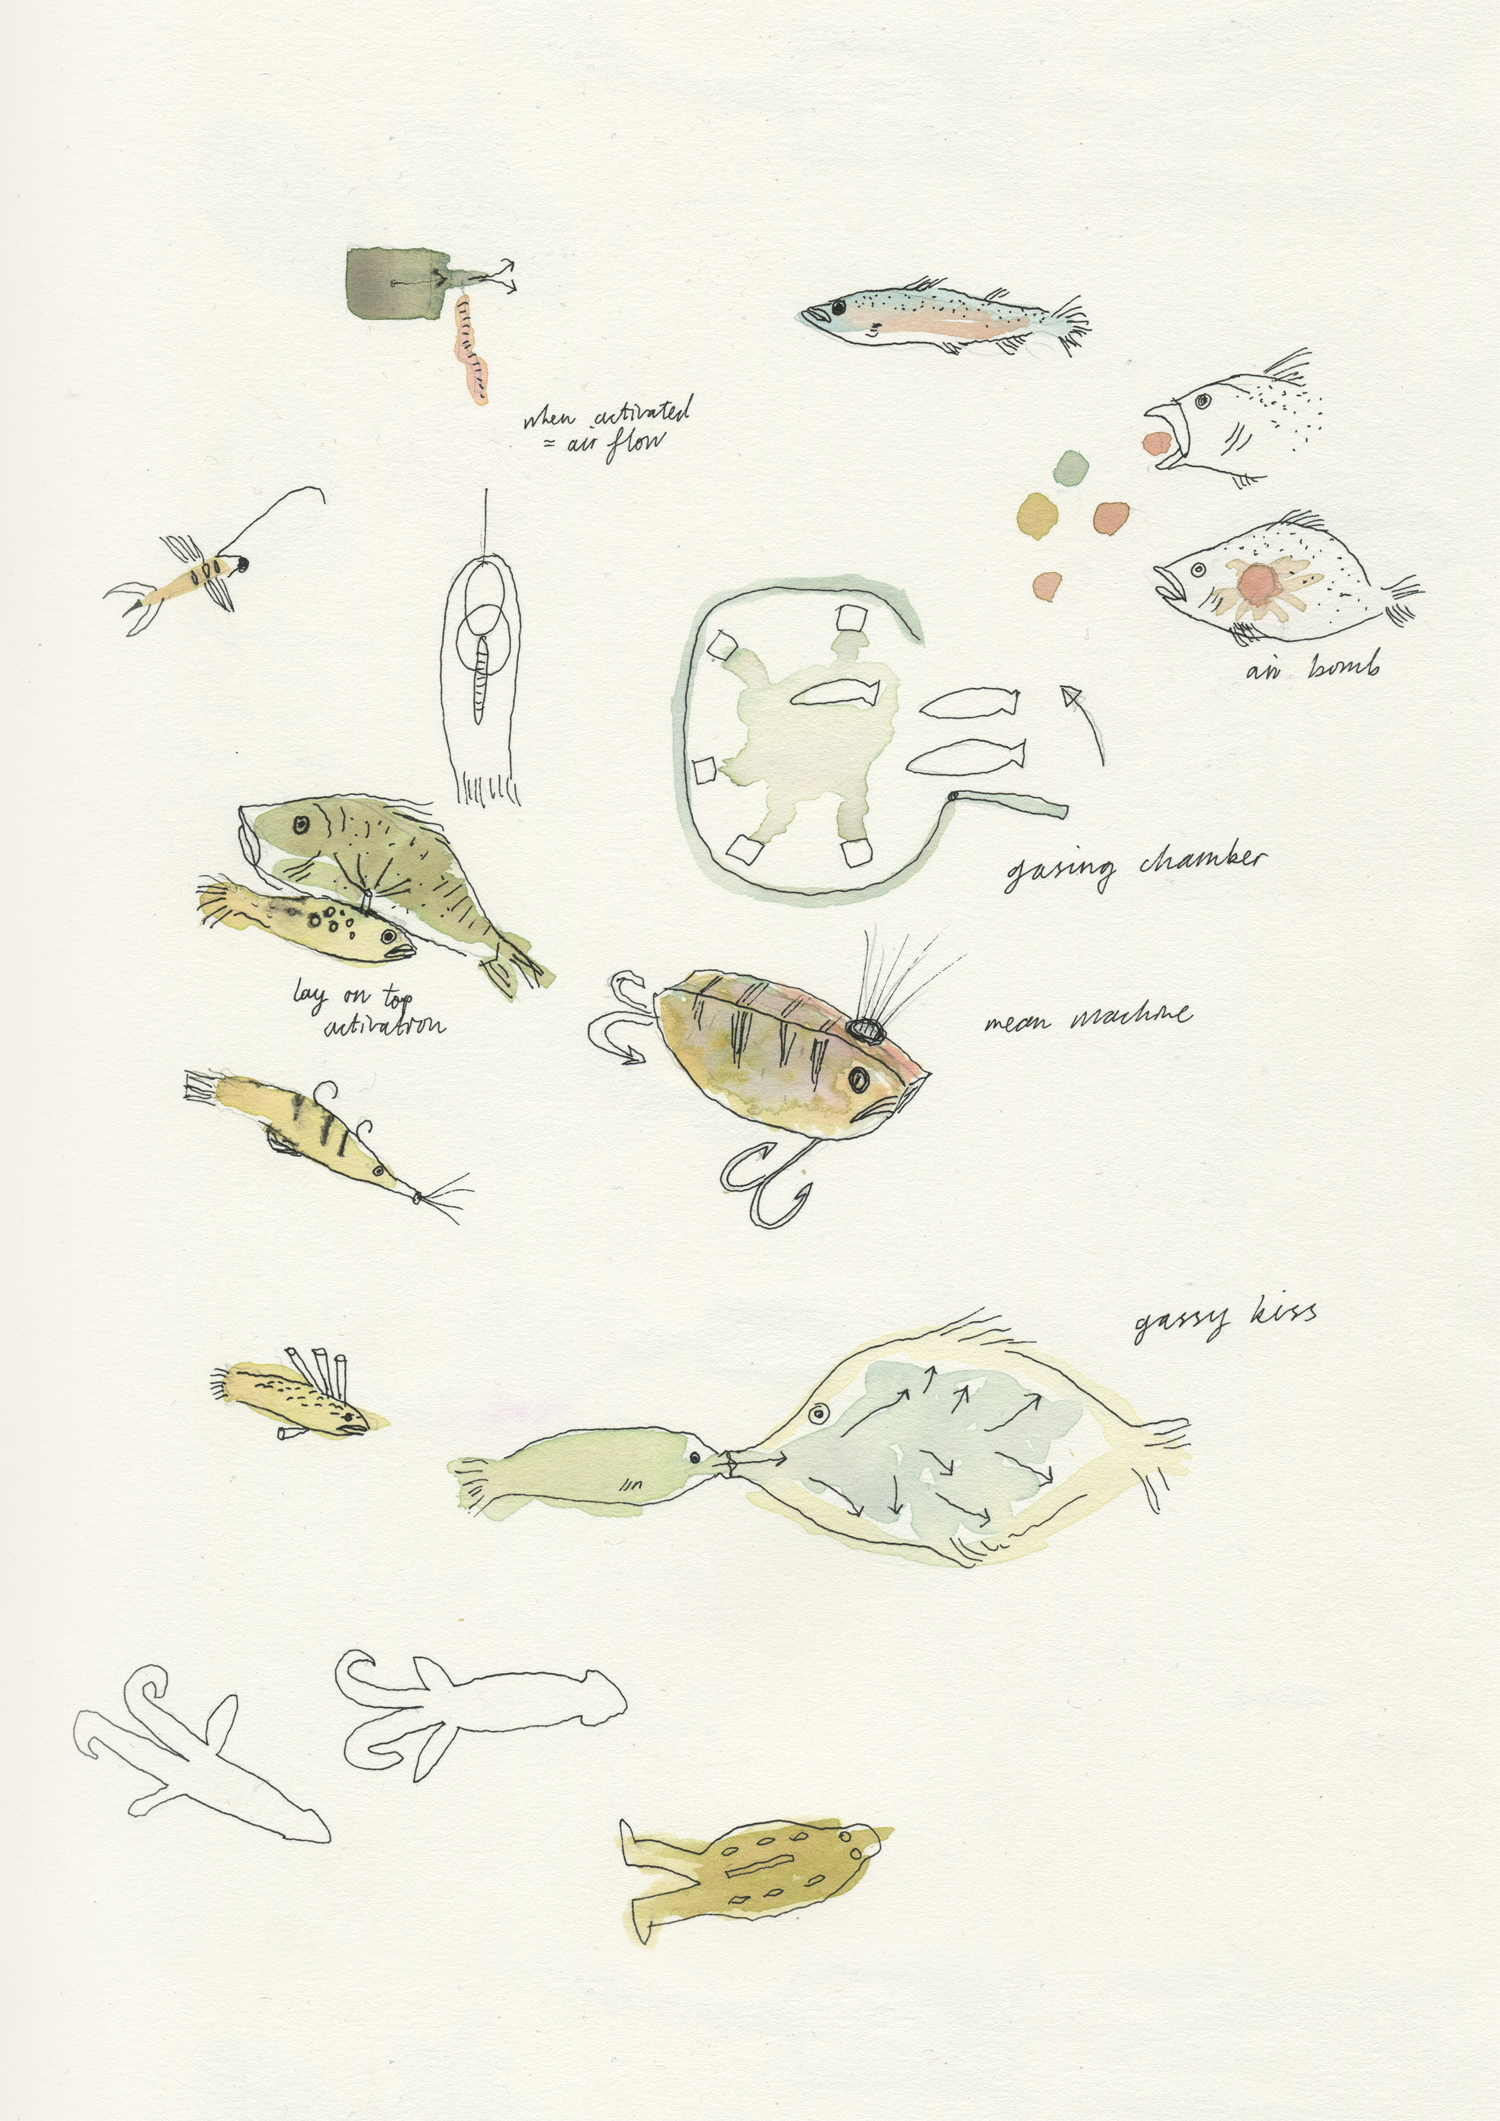 when activated
= air flow
air bomb
gasing chamber
lay on top
activation
mean machine
gassy kiss